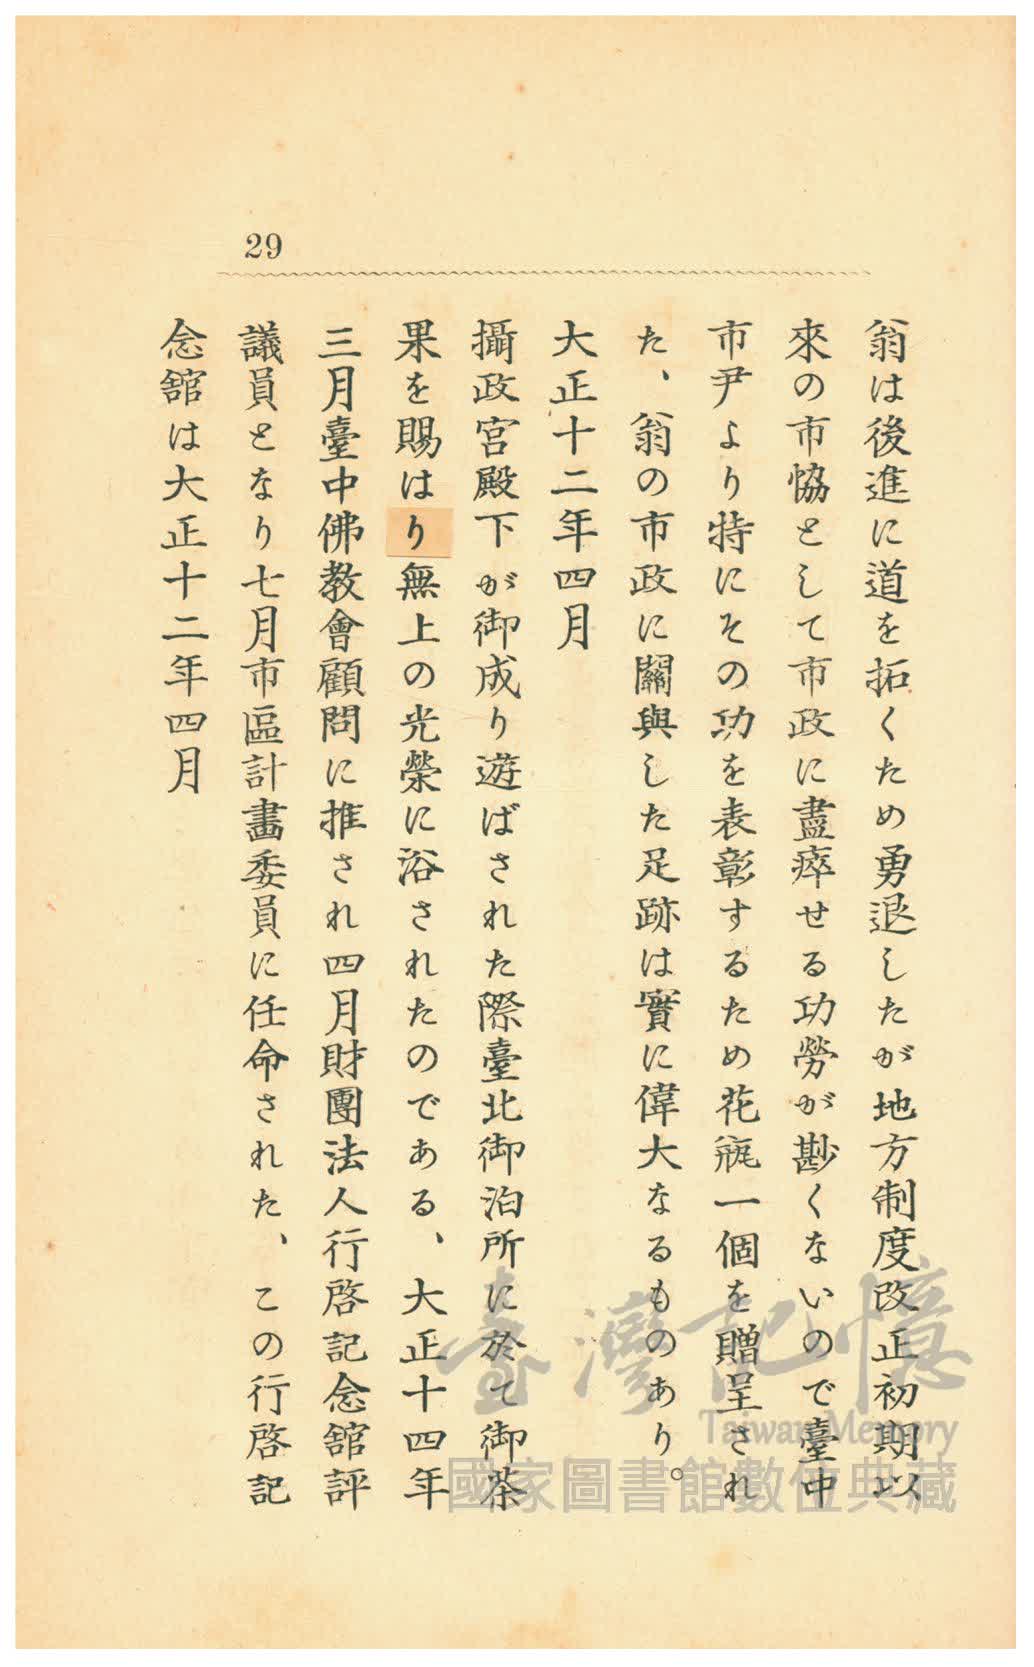 29
翁は後進に道を拓くため勇退したが地方制度改正初期以
來の市協として市政に盡瘁せる功勞が尠くないので臺中
市尹より特にその功を表彰するため花瓶一個を贈呈され
た、翁の市政に關與した足跡は實に偉大なるものあり。
大正十二年四月
攝政宮殿下が御成り遊ばされた際臺北御泊所に於て御茶
果を賜はり無上の光榮に浴されたのである、大正十四年
三月臺中佛教會顧問に推され四月財團法人行啓記念舘評
議員となり七月市區計畫委員に任命された、この行啓記
念舘は大正十二年四月
臺灣記憶
Taiwan Memory
國家圖書館數位典藏